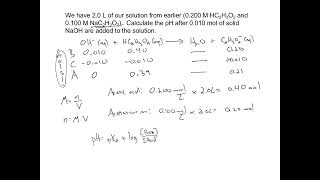 We have 2.0 L of our solution from earlier (0.200 M HC₂H₃O₂ and
0.100 M NaC₂H₃O₂). Calculate the pH after 0.010 mol of solid
NaOH are added to the solution.
OH⁻(aq) + HC₂H₃O₂(aq) → H₂O + C₂H₃O₂⁻(aq)
B 0.010 0.40 — 0.20
C -0.010 -0.010 — +0.010
A 0 0.39 — 0.21
M = n/V
Acetic acid: 0.200 mol/L × 2.0L = 0.40 mol
n = M·V
0.100 mol/L × 2.0L = 0.20 mol
pH = pKa + log [Base]/[Acid]